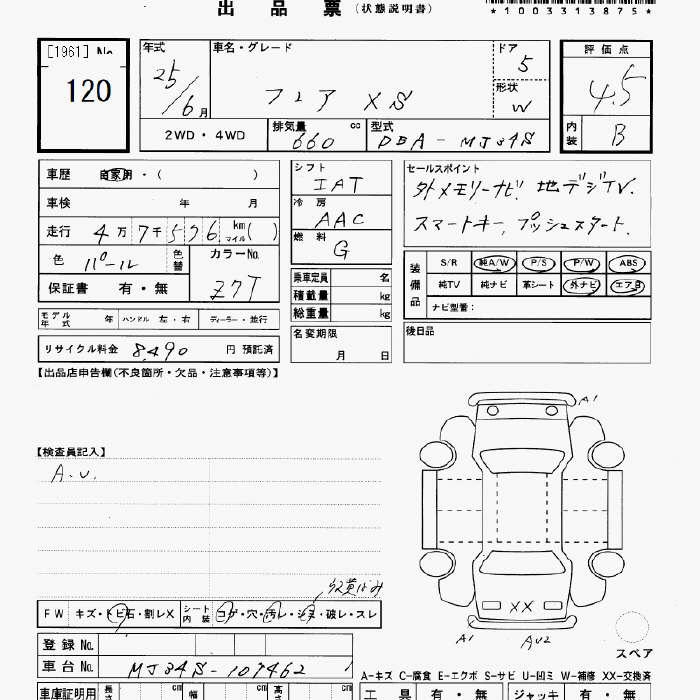 出品票 (状態説明書)
*1003313875*
[1961] No.
120
年式
25/6月
車名・グレード
フレア XS
ドア
5
形状
W
評価点
4.5
内装
B
2WD・4WD
排気量
660 cc
型式
DBA-MJ34S
車歴 自家用・( )
車検 年 月
走行 4万7千576 km マイル( )
色 パール 色替
カラーNo.
Z7T
保証書 有・無
シフト
IAT
冷房
AAC
燃料
G
乗車定員 名
積載量 kg
総重量 kg
セールスポイント
外メモリーナビ. 地デジTV.
スマートキー, プッシュスタート.
装備品
S/R 純A/W P/S P/W ABS
純TV 純ナビ 革シート 外ナビ エアB
ナビ型番:
モデル年式 年 ハンドル 左・右 ディーラー・並行
リサイクル料金 8,490 円 預託済
名変期限
月 日
後日品
【出品店申告欄(不良箇所・欠品・注意事項等)】
【検査員記入】
A.U.
A1
XX
A1
AU2
スペア
FW キズ・トビ石・割レX
シート内装 コゲ・穴・汚レ・シミ・破レ・スレ
登録 No.
車台 No. MJ34S-107462
A-キズ C-腐食 E-エクボ S-サビ U-凹ミ W-補修 XX-交換済
車庫証明用 長さ cm 幅 cm 高さ cm
工具 有・無 ジャッキ 有・無